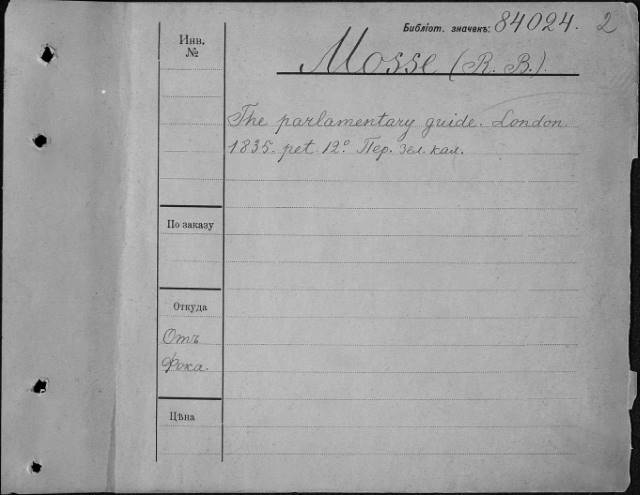 Библіот. значекъ: 84024. 2
Инв. №
Mosse (R. B.)
The parlamentary guide. London
1835. pet 12º. Пер. зел. кал.
По заказу
Откуда
Отъ
Фока.
Цѣна